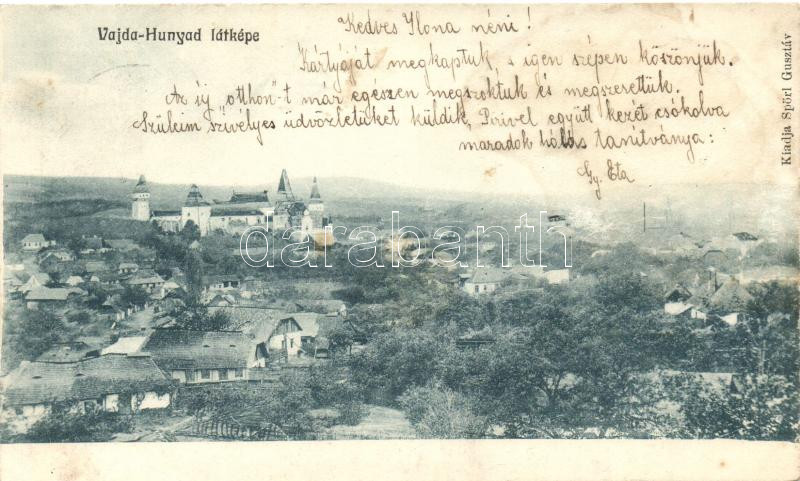 Vajda-Hunyad látképe
Kedves Ilona néni!
Kártyáját megkaptuk s igen szépen köszönjük.
Az új "otthon"-t már egészen megszoktuk és megszerettük.
Szüleim szívélyes üdvözletüket küldik, Pirivel együtt kezét csókolva
maradok hálás tanítványa:
Gy. Eta
Kiadja Spörl Gusztáv
darabanth